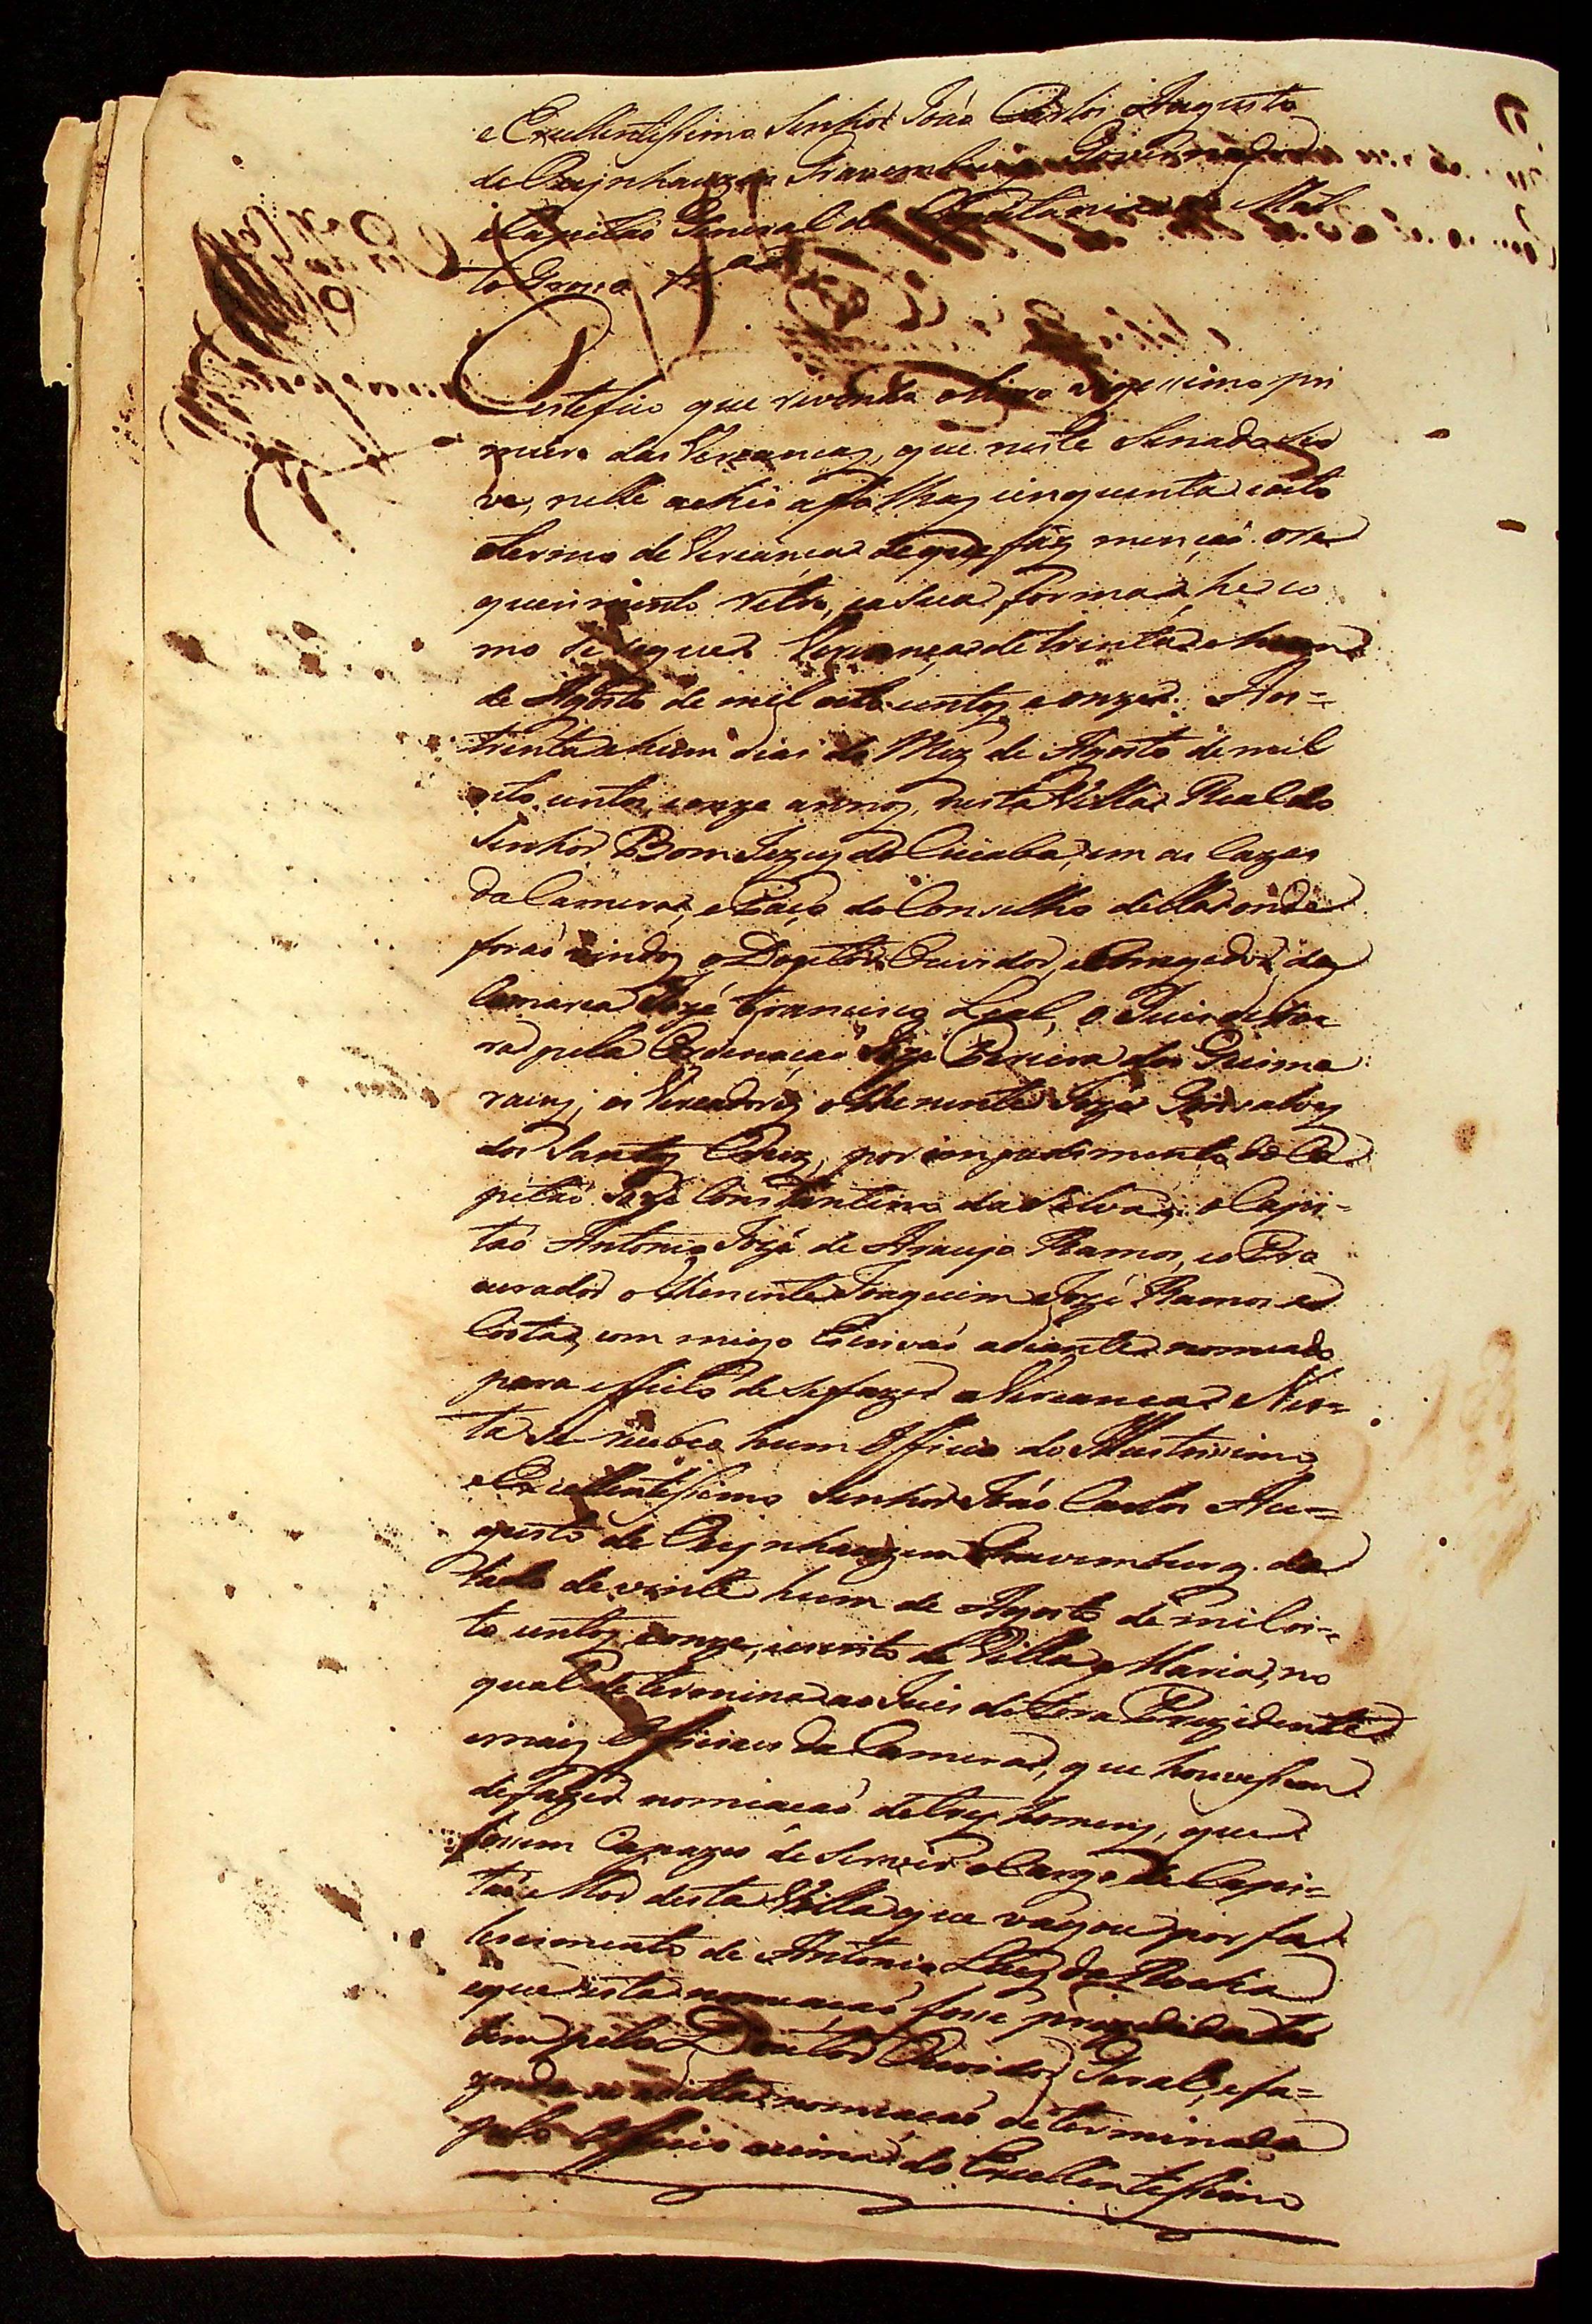 e Excellentissimo Senhor João Carlos Augusto
de Oeynhauzen Gravemburg Governador
e Capitão General da Capitania de Mat
to Grosso
Certefico que revendo o livro vigessimo pri
meiro das Vereanças, que neste Senado ser
ve, nelle achei a folhas cinquenta e oito
o termo de Vereança de que fáz menção o re
querimento retro, e a sua forma he co
mo se segue. Vereança de trinta e hum
de Agosto de mil oito centos e onze. Aos=
trinta e hum dias do Mez de Agosto de mil
oito centos e onze annos, nesta Villa Real do
Senhor Bom Jezus do Cuiabá, em as Cazas
da Camera, e Paço do Conselho della onde
forão vindos o Doutor Ouvidor, e Corregedor da
Comarca Jozé Francisco Leal, o Juis de Fo
ra pela Ordenação Joze Pereira dos Guima
raens, os Vereadores o Thenente Joze Gonsalves
dos Santos Cruz, por impedimento do Ca
pitão Joze Constantino da Silva, o Capi=
tão Antonio Jozé de Araujo Ramos, e o Pro
curador o Thenente Joaquim Jozé Ramos e
Costa, com migo Escrivão adiante nomeado
para effeito de se fazer a Vereança. Nes=
ta se recebeo hum Officio do Illustrissimo,
e Excellentissimo Senhor João Carlos Au=
gusto de Oeynhauzem Gravemburg. da
tado de vinte hum de Agosto de mil oi=
to centos e onze, escrito de Villa Maria, no
qual determina ao Juis de Fora Prezidente
e mais Officiaes da Camera, que houvessem
de fazer nomiação de tres homens, que
fossem Capazes de servir o Cargo de Capi=
tão Mor desta Villa que vagou por fa
lescimento de Antonio Luis da Rocha
e que esta nomeação fosse prezedida tão
bem pelo Doutor Ouvidor Geral, e fa=
zendo-se a dita nomiação determinada
pelo Officio acima do Excellentissimo